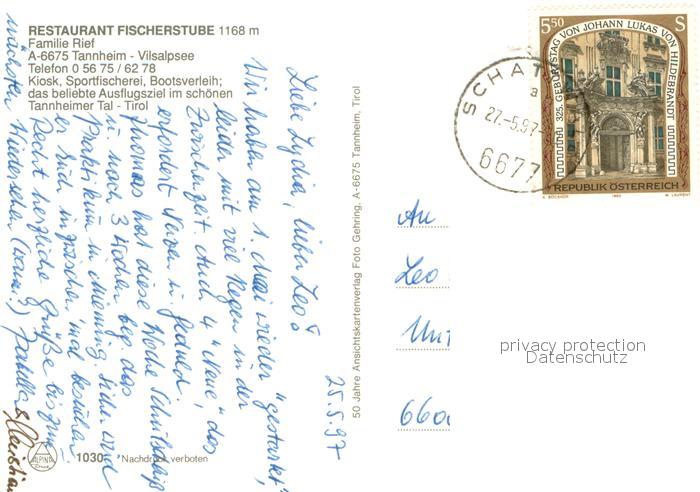 RESTAURANT FISCHERSTUBE 1168 m
Familie Rief
A-6675 Tannheim - Vilsalpsee
Telefon 0 56 75 / 62 78
Kiosk, Sportfischerei, Bootsverleih;
das beliebte Ausflugsziel im schönen
Tannheimer Tal - Tirol
25.5.97
Liebe Lydia, lieber Leo!
Wir haben am 1. Mai wieder "gestartet",
leider mit viel Regen in der
Zwischenzeit. Auch 4 "Neue", das
erfordert Nerven u. Geduld.
Thomas hat diese Woche Schulschluß
u. nach 3 Wochen beg. das
Praktikum in Mieming. Sicher wird
er Euch inzwischen 'mal besuchen
Recht herzliche Grüße bis zum
nächsten Wiedersehen
& Christian
ALPINA
1030 Nachdruck verboten
50 Jahre Ansichtskartenverlag Foto Gehring, A-6675 Tannheim, Tirol
SCHAT
a
27.-5.97-
6677
5.50 S
325. GEBURTSTAG VON JOHANN LUKAS VON HILDEBRANDT
REPUBLIK ÖSTERREICH
1993
An
Leo
660
privacy protection
Datenschutz